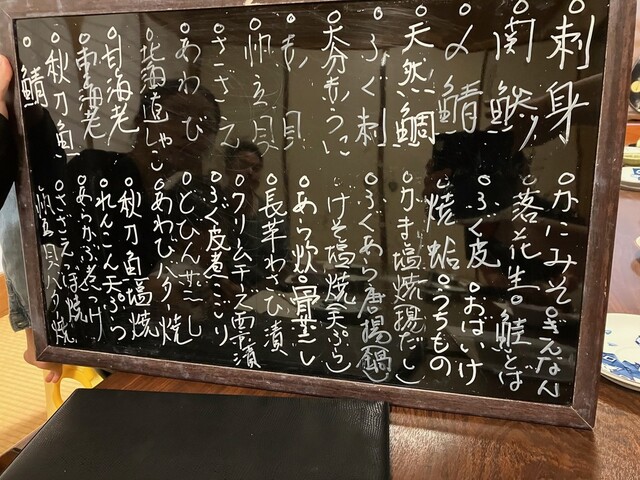 刺身
○関鯵
○〆鯖
○天然鯛
○ふぐ刺
○大分赤うに
○赤貝
○帆立貝
○さざえ
○あわび
○北海道しゃこ
○甘海老
○車海老
○秋刀魚
○鯖
○かにみそ○ぎんなん
○落花生○鮭とば
○ふぐ皮○おばいけ
○焼蛤○うちもの
○かき塩焼揚だし
○ふぐあら唐揚鍋
○げそ塩焼天ぷら
○あら炊○骨蒸し
○長芋わさび漬
○クリームチーズ味噌漬
○ふぐ皮煮こごり
○どびん蒸し
○あわびバター焼
○秋刀魚塩焼
○れんこん天ぷら
○あらかぶ煮つけ
○さざえつぼ焼
○帆立貝バター焼